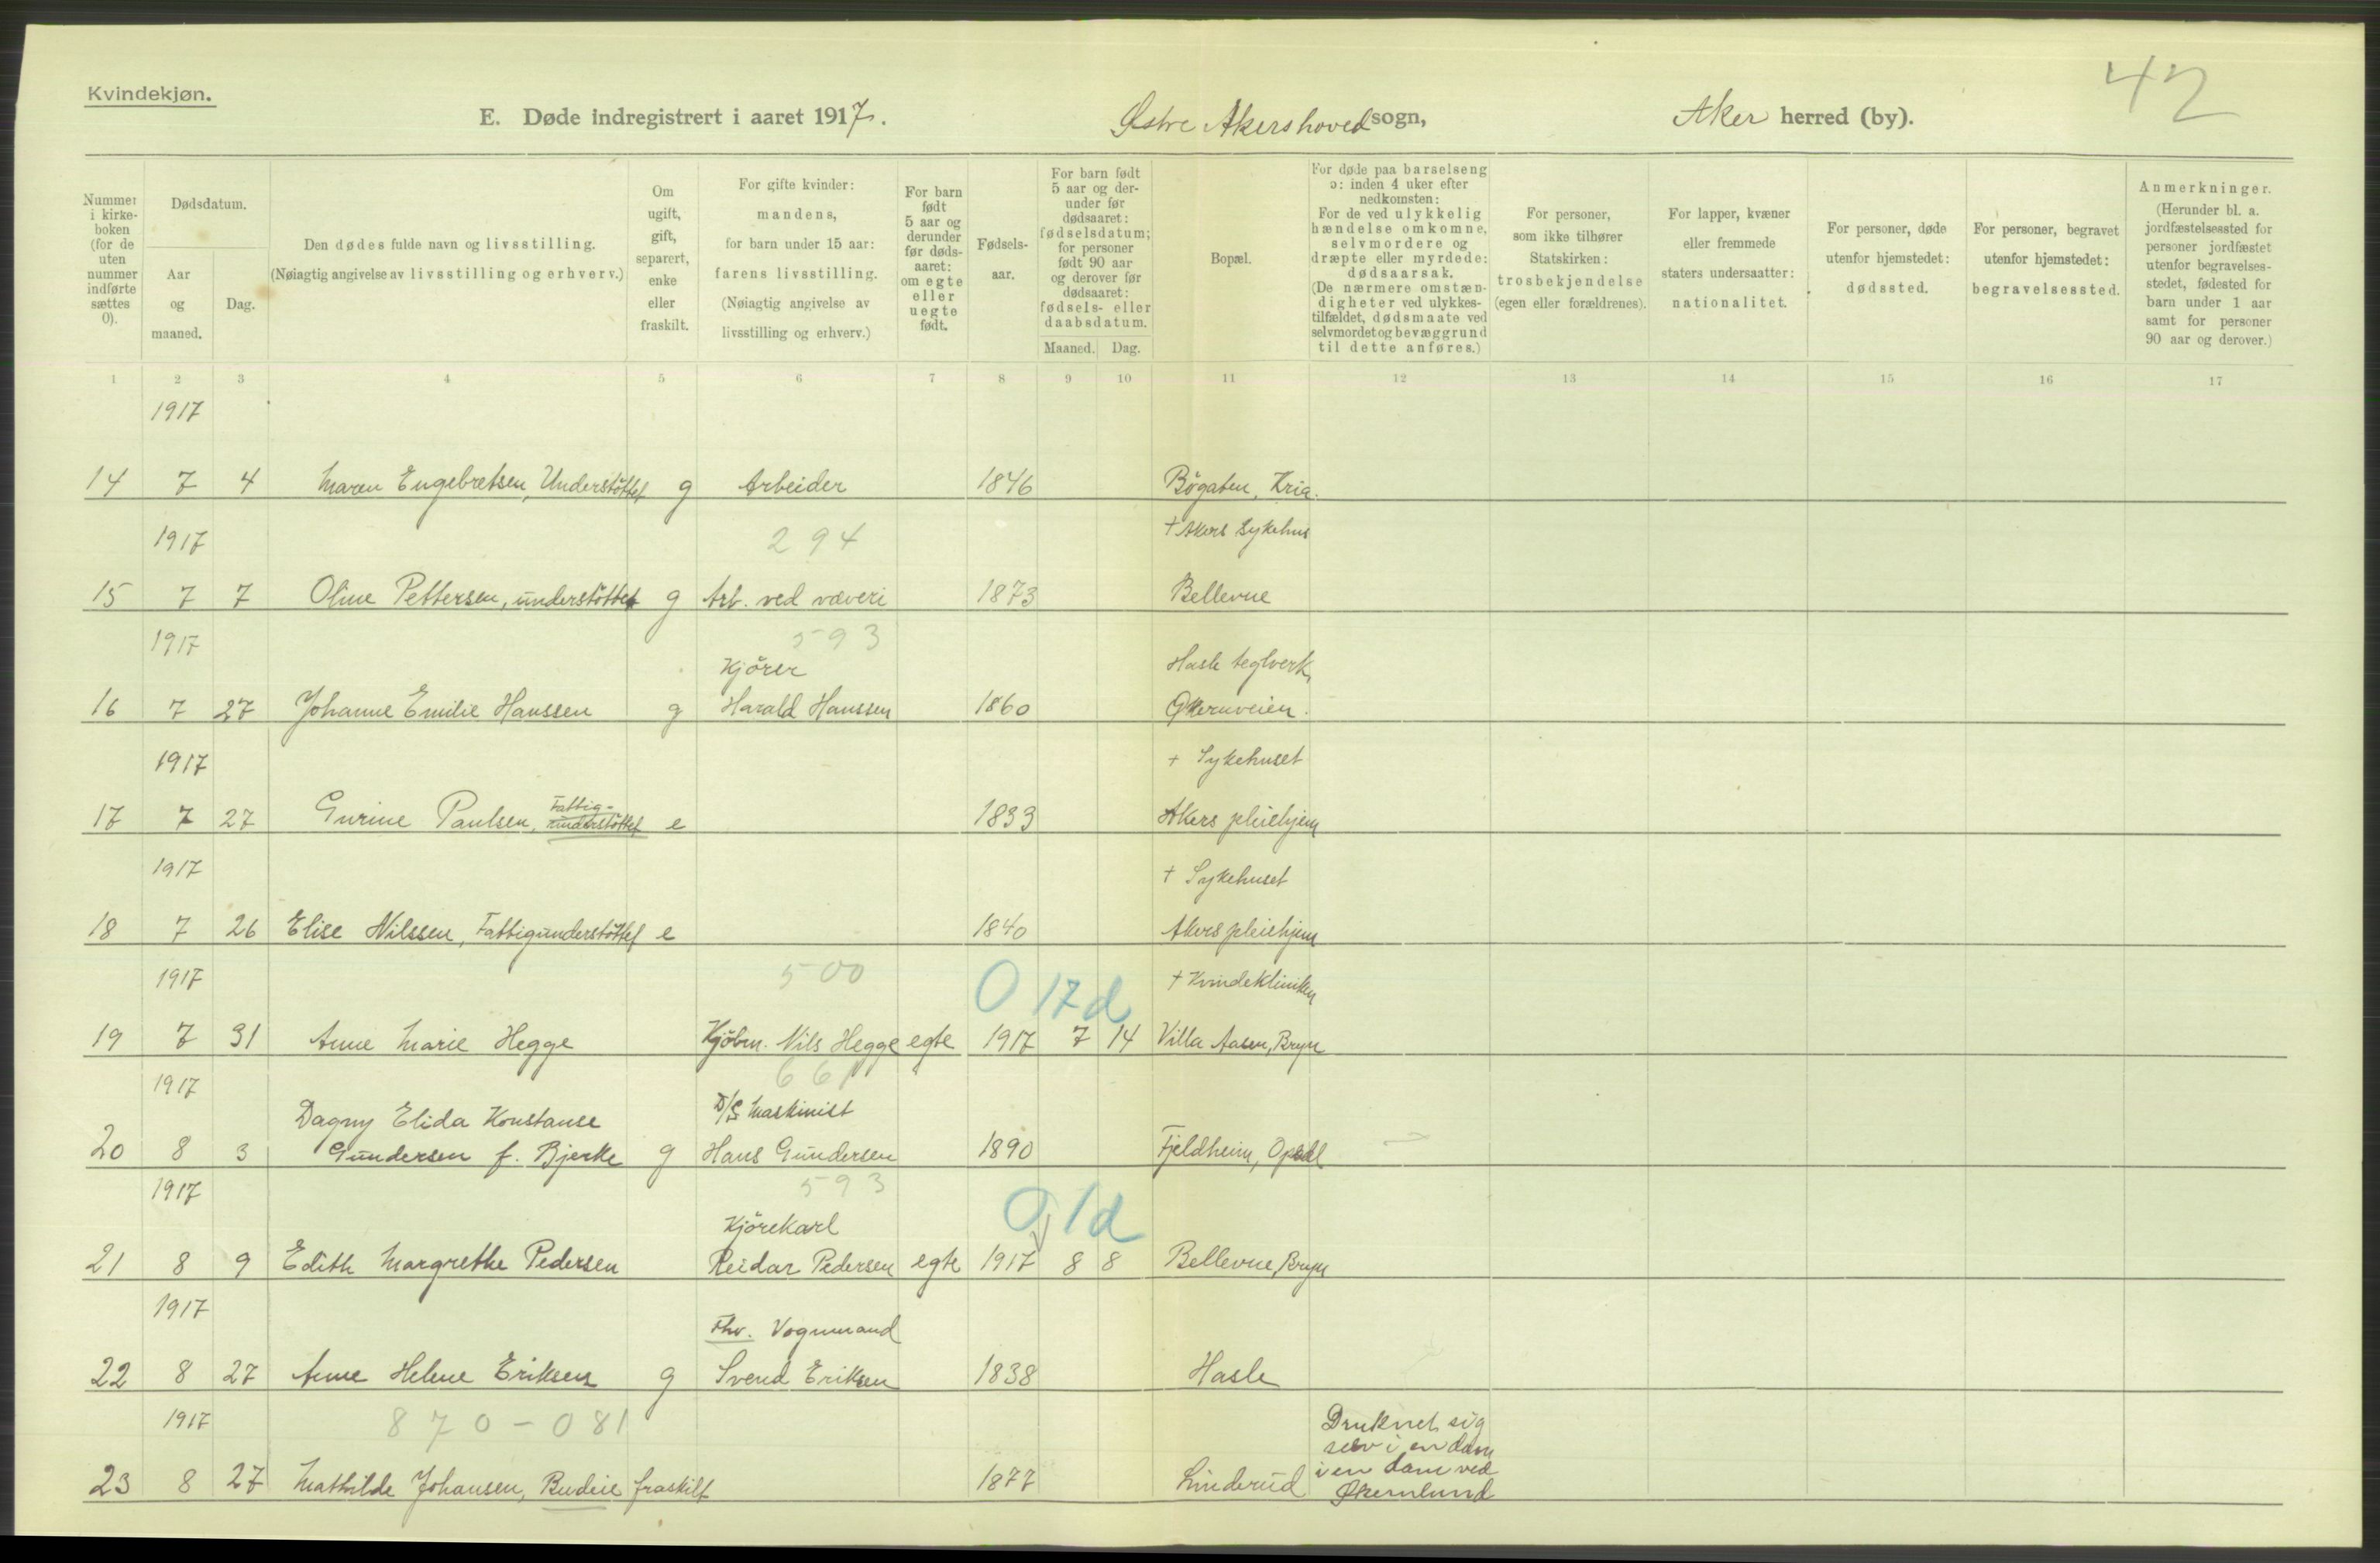 Kvindekjøn.
42
E. Døde indregistrert i aaret 1917.
Østre Akers hovedsogn,
Aker herred (by).
Nummer i kirke-boken (for de uten nummer indførte sættes 0).
Dødsdatum.
Aar og maaned.
Dag.
Den dødes fulde navn og livsstilling.
(Nøiagtig angivelse av livsstilling og erhverv.)
Om ugift, gift, separert, enke eller fraskilt.
For gifte kvinder: mandens, for barn under 15 aar: farens livsstilling. (Nøiagtig angivelse av livsstilling og erhverv.)
For barn født 5 aar og derunder før døds-aaret: om egte eller uegte født.
Fødsels-aar.
For barn født 5 aar og der-under før dødsaaret: fødselsdatum; for personer født 90 aar og derover før dødsaaret: fødsels- eller daabsdatum.
Maaned. Dag.
Bopæl.
For døde paa barselseng ɔ: inden 4 uker efter nedkomsten: For de ved ulykkelig hændelse omkomne, selvmordere og dræpte eller myrdede: dødsaarsak. (De nærmere omstæn-digheter ved ulykkes-tilfældet, dødsmaate ved selvmordet og bevæggrund til dette anføres.)
For personer, som ikke tilhører Statskirken: trosbekjendelse (egen eller forældrenes).
For lapper, kvæner eller fremmede staters undersaatter: nationalitet.
For personer, døde utenfor hjemstedet: dødssted.
For personer, begravet utenfor hjemstedet: begravelsessted.
Anmerkninger. (Herunder bl. a. jordfæstelsessted for personer jordfæstet utenfor begravelses-stedet, fødested for barn under 1 aar samt for personer 90 aar og derover.)
1 2 3 4 5 6 7 8 9 10 11 12 13 14 15 16 17
1917
14 7 4 Maren Engebretsen, Understöttet g Arbeider 1846 Bögaten, Kria.
1917 294 + Akers Sykehus
15 7 7 Oline Pettersen, understöttet g Arb. ved væveri 1873 Bellevue
1917 593
Kjörer Hasle teglverk,
16 7 27 Johanne Emilie Hanssen g Harald Hanssen 1860 Økernveien.
1917 + Sykehuset
Fattig-
17 7 27 Gurine Paulsen, understöttet e 1833 Akers pleiehjem
1917 + Sykehuset
18 7 26 Elise Nilssen, Fattigunderstöttet e 1840 Akers pleiehjem
1917 500 0 17d + Kvindekliniken
19 7 31 Anne Marie Hegge Kjöbm. Nils Hegge egte 1917 7 14 Villa Aasen, Bryn
1917 661
Dagny Elida Konstanse D/S Maskinist
20 8 3 Gundersen f. Bjerke g Hans Gundersen 1890 Fjeldheim, Opsal
1917 593 0 1d
Kjörekarl
21 8 9 Edith Margrethe Pedersen Reidar Pedersen egte 1917 8 8 Bellevue, Bryn
1917
Fhv. Vognmand
22 8 27 Anne Helene Eriksen g Svend Eriksen 1838 Hasle
1917 870-081 Druknet sig
selv i en dam
i en dam ved
23 8 27 Mathilde Johansen, Budeie fraskilt 1877 Linderud Økernlund